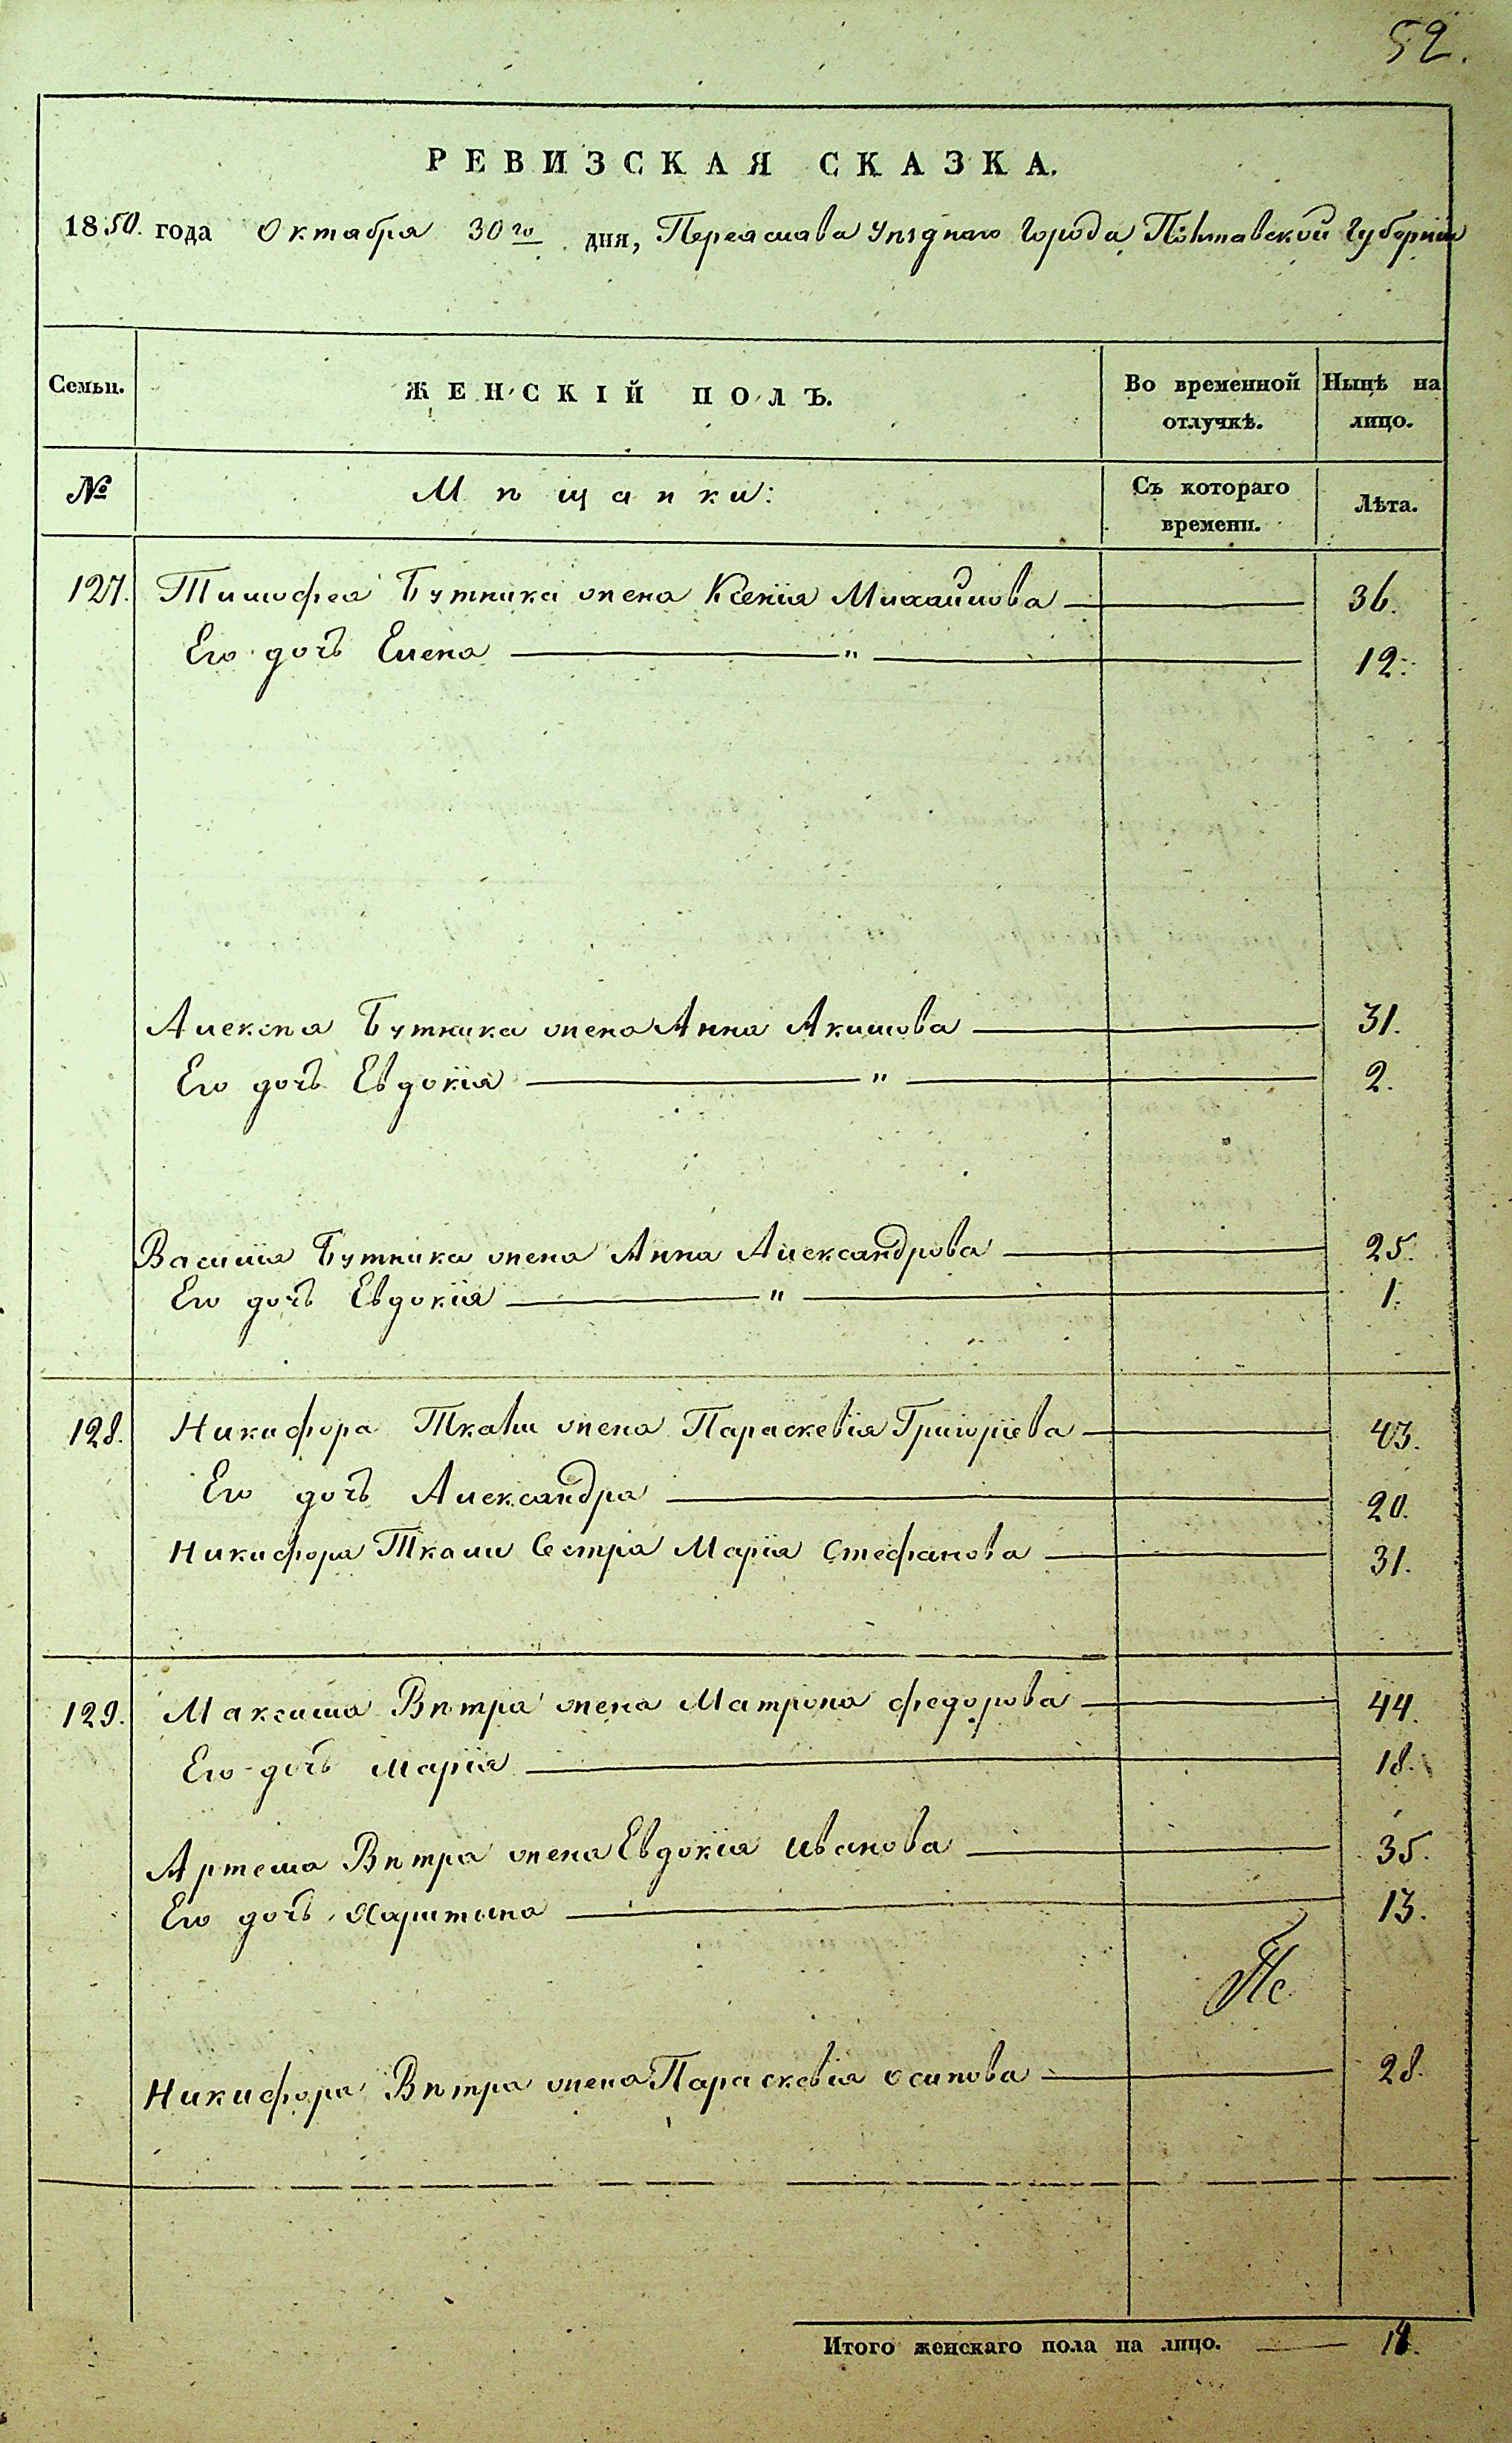 52.
РЕВИЗСКАЯ СКАЗКА.
1850. года Октября 30го дня, Переяслава Уѣзднаго Города Полтавской Губерніи
Семьи.
ЖЕНСКІЙ ПОЛЪ.
Во временной отлучкѣ.
Нынѣ на лицо.
№
Мѣщанки:
Съ котораго времени.
Лѣта.
127. Тимофея Бутника жена Ксенія Михайлова 36.
Его дочь Елена " 12.
Алексѣя Бутника жена Анна Акимова 31.
Его дочь Евдокія " 2.
Василія Бутника жена Анна Александрова 25.
Его дочь Евдокія " 1.
128. Никифора Ткача жена Параскевія Григоріева 43.
Его дочь Александра 20.
Никифора Ткача Сестра Марія Стефанова 31.
129. Максима Вѣтра жена Матрона Федорова 44.
Его дочь Марія 18.
Артема Вѣтра жена Евдокія Иванова 35.
Его дочь Харитина 13.
Никифора Вѣтра жена Параскевія Осипова 28.
Итого женскаго пола на лицо. 14.